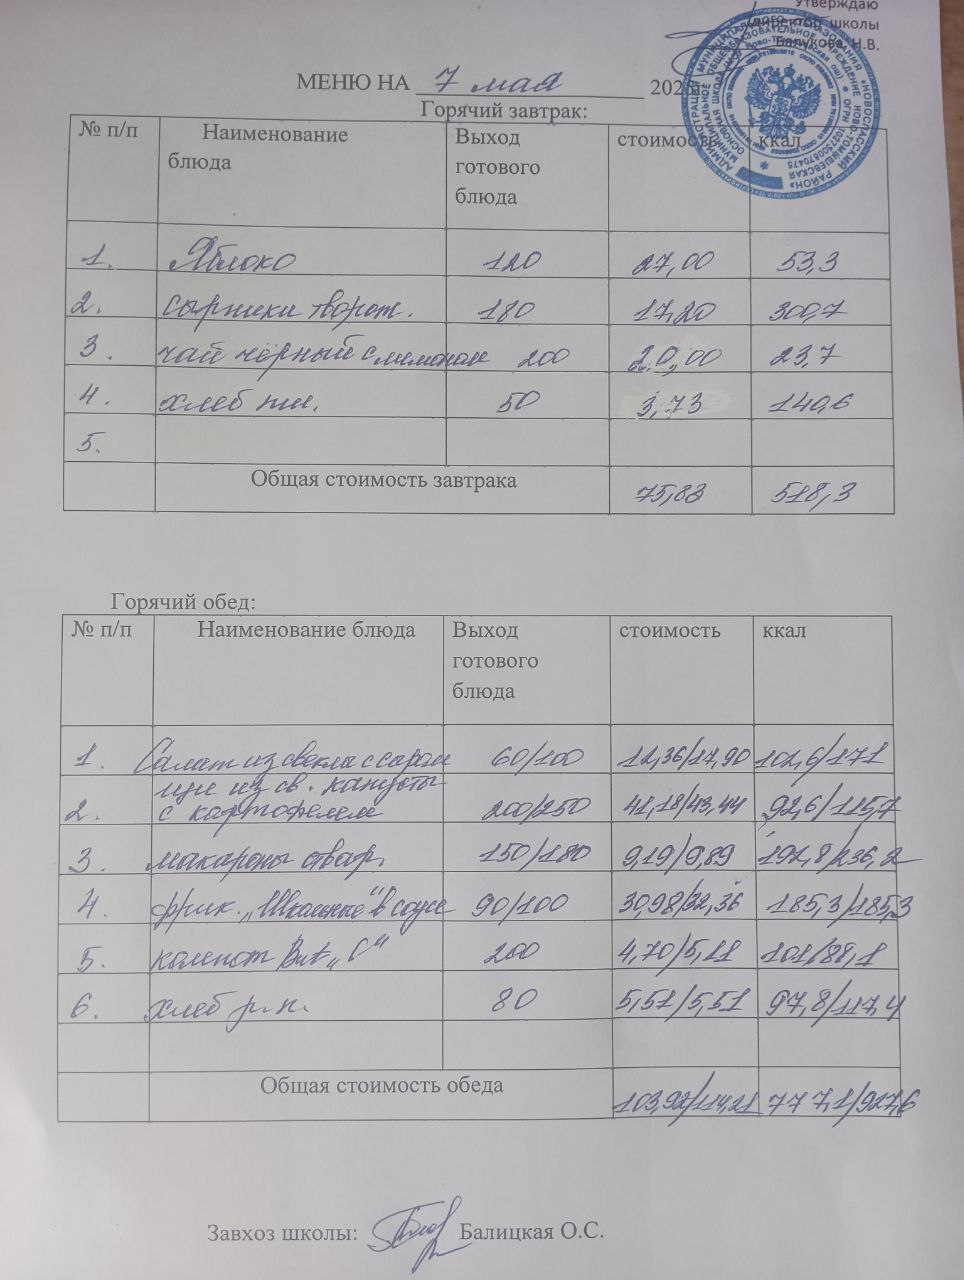 Утверждаю
Директор школы
Балукова Н.В.
МЕНЮ НА 7 мая 202
Горячий завтрак:
№ п/п Наименование блюда Выход готового блюда стоимость ккал
1. Яблоко 120 27,00 53,3
2. сырники творож. 180 17,20 300,7
3. чай чёрный с лимоном 200 20,00 23,7
4. хлеб пш. 50 3,73 140,6
5.
Общая стоимость завтрака 75,83 518,3
Горячий обед:
№ п/п Наименование блюда Выход готового блюда стоимость ккал
1. Салат из свеклы с сыром 60/100 12,36/17,90 102,6/171
2. щи из св. капусты с картофелем 200/250 41,18/43,44 92,6/115,7
3. макароны отвар. 150/180 9,19/9,89 192,8/236,2
4. фрик. „Школьные" в соусе 90/100 30,98/32,36 185,3/185,3
5. компот Вит „С" 200 4,70/5,11 101/88,1
6. хлеб р.п. 80 5,51/5,51 97,8/117,4
Общая стоимость обеда 103,92/114,21 777,1/927,6
Завхоз школы: Балицкая О.С.